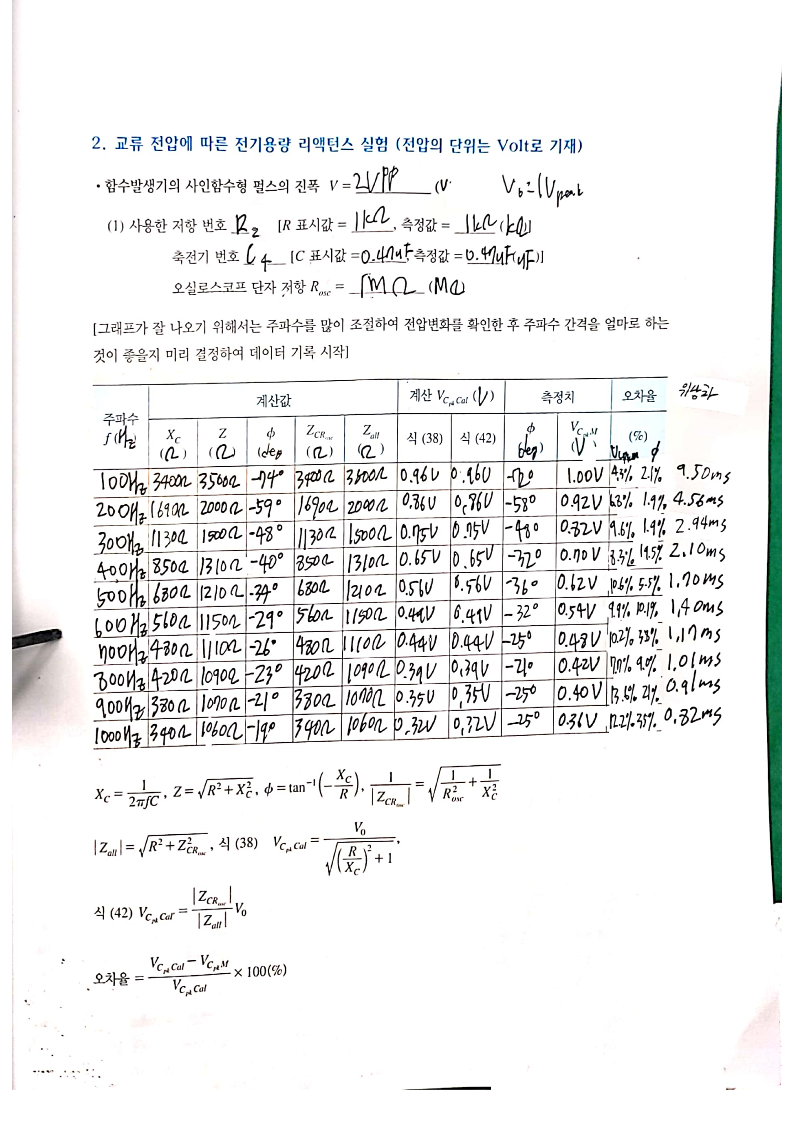 2. 교류 전압에 따른 전기용량 리액턴스 실험 (전압의 단위는 Volt로 기재)
• 함수발생기의 사인함수형 펄스의 진폭 V = 2VPP (V V₀=1Vpeak
(1) 사용한 저항 번호 R₂ [R 표시값 = 1kΩ, 측정값 = 1kΩ (kΩ)]
축전기 번호 C₄ [C 표시값 = 0.47uF, 측정값 = 0.47uF(uF)]
오실로스코프 단자 저항 R_osc = 1MΩ (MΩ)
[그래프가 잘 나오기 위해서는 주파수를 많이 조절하여 전압변화를 확인한 후 주파수 간격을 얼마로 하는
것이 좋을지 미리 결정하여 데이터 기록 시작]
주파수 f (Hz) 계산값 계산 V_CpkCal (V) 측정치 오차율 위상차
X_C (Ω) Z (Ω) ϕ (deg) Z_CRosc (Ω) Z_all (Ω) 식 (38) 식 (42) ϕ (deg) V_CpkM (V) (%) Vcpkm ϕ
100Hz 3400Ω 3500Ω -74° 3400Ω 3500Ω 0.96V 0.96V -72° 1.00V 4.3% 2.1% 9.50ms
200Hz 1690Ω 2000Ω -59° 1690Ω 2000Ω 0.86V 0.86V -58° 0.92V 6.8% 1.9% 4.56ms
300Hz 1130Ω 1500Ω -48° 1130Ω 1500Ω 0.75V 0.75V -48° 0.82V 9.6% 1.9% 2.94ms
400Hz 850Ω 1310Ω -40° 850Ω 1310Ω 0.65V 0.65V -32° 0.70V 8.3% 19.5% 2.10ms
500Hz 680Ω 1210Ω -34° 680Ω 1210Ω 0.56V 0.56V -36° 0.62V 10.6% 5.5% 1.70ms
600Hz 560Ω 1150Ω -29° 560Ω 1150Ω 0.49V 0.49V -32° 0.54V 9.9% 10.1% 1.40ms
700Hz 480Ω 1110Ω -26° 480Ω 1110Ω 0.44V 0.44V -25° 0.48V 10.2% 3.8% 1.17ms
800Hz 420Ω 1090Ω -23° 420Ω 1090Ω 0.39V 0.39V -21° 0.42V 7.7% 9.0% 1.01ms
900Hz 380Ω 1070Ω -21° 380Ω 1070Ω 0.35V 0.35V -25° 0.40V 13.6% 21% 0.91ms
1000Hz 340Ω 1060Ω -19° 340Ω 1060Ω 0.32V 0.32V -25° 0.36V 12.2% 35% 0.82ms
X_C = 1/(2πfC), Z = √(R²+X_C²), ϕ = tan⁻¹(−X_C/R), 1/|Z_CRosc| = √(1/R_osc² + 1/X_C²)
|Z_all| = √(R²+Z²_CRosc), 식 (38) V_CpkCal = V₀/√((R/X_C)²+1),
식 (42) V_CpkCal = |Z_CRosc|/|Z_all| V₀
오차율 = (V_CpkCal − V_CpkM)/V_CpkCal × 100(%)